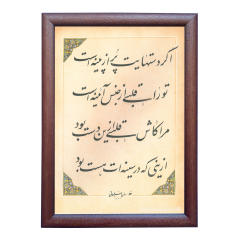 اگر دستهایت پر از پینه است
تو را قلبی از جنس آیینه است
مرا کاش قلبی ازین دست بود
ازینی که در سینه ات هست بود